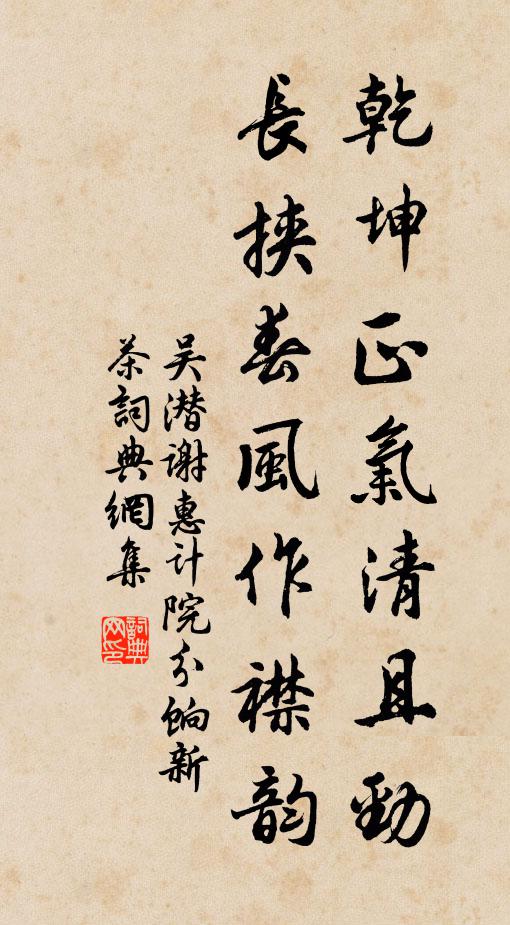 乾坤正氣清且勁
長挾春風作襟韵
吴潜谢惠计院分餉新
茶詞典網集
詞典
网印